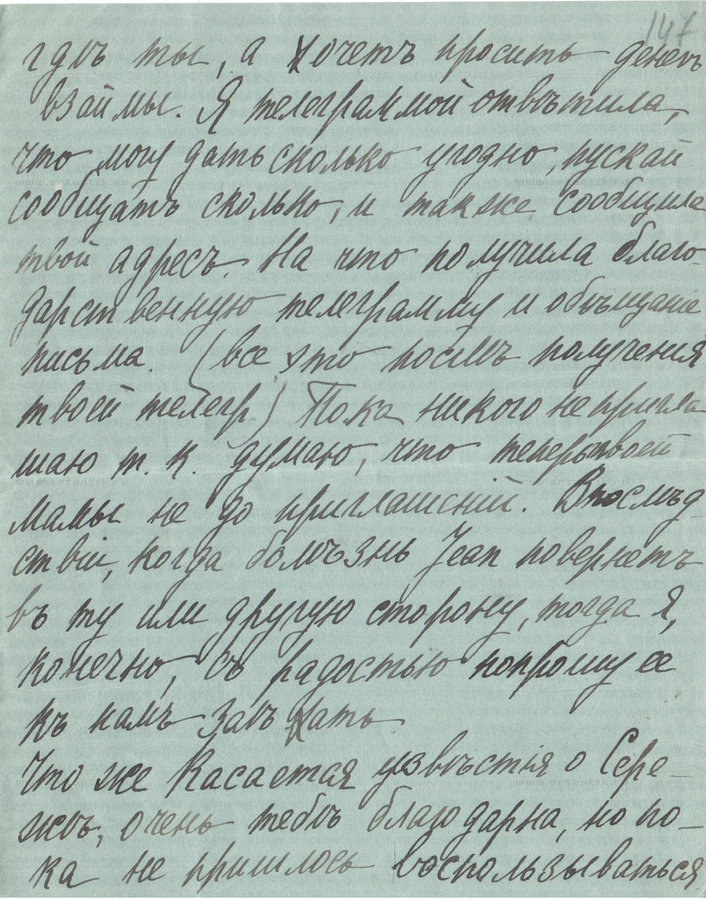 147
гдѣ ты, а хочетъ просить денегъ
взаймы. Я телеграммой отвѣтила,
что могу дать сколько угодно, пускай
сообщатъ сколько, и также сообщила
твой адресъ. На что получила благо-
дарственную телеграмму и обѣщаніе
письма. (все это послѣ полученія
твоей телегр.) Пока никого не пригла
шаю т. к. думаю, что теперь твоей
мамы не до приглашеній. Впослѣд
ствіи, когда болѣзнь Jean повернетъ
въ ту или другую сторону, тогда я,
конечно, съ радостью попрошу ее
къ намъ заѣхать
Что же касается извѣстія о Сере-
жѣ, очень тебѣ благодарна, но по-
ка не пришлось воспользываться